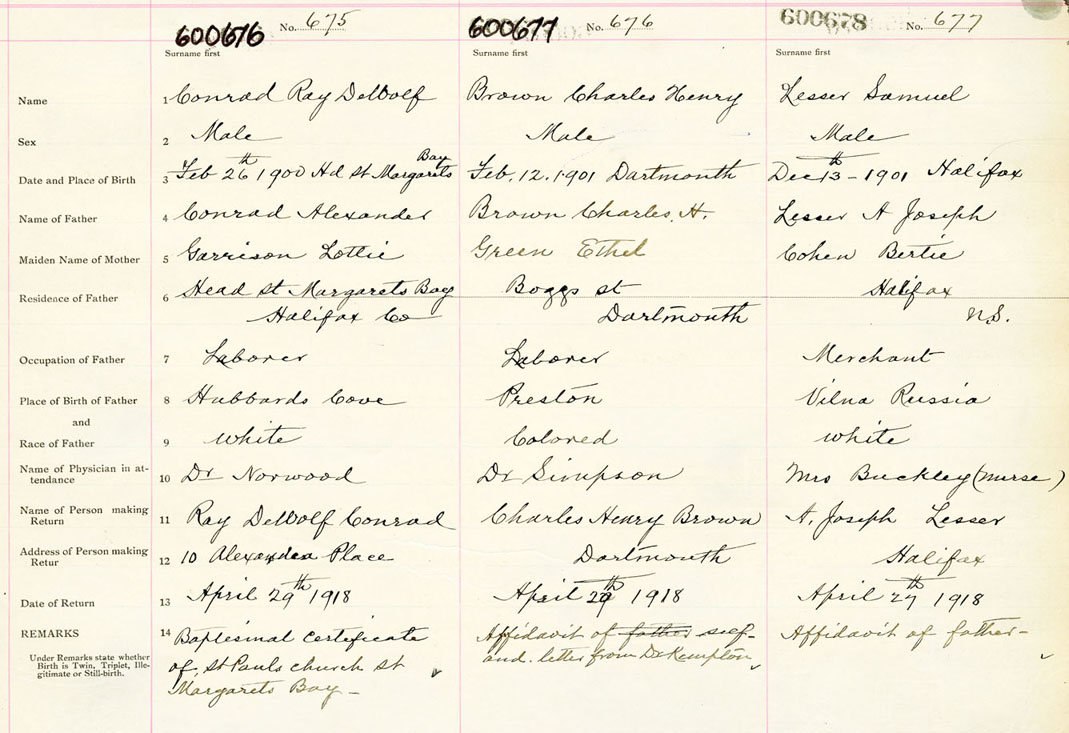 600676 No. 675
600677 No. 676
600678 No. 677
Surname first Surname first Surname first
Name 1 Conrad Ray DeWolf Brown Charles Henry Lesser Samuel
Sex 2 Male Male Male
Date and Place of Birth 3 Feb 26th 1900 Hd St Margarets Bay Feb. 12. 1901 Dartmouth Dec 13th - 1901 Halifax
Name of Father 4 Conrad Alexander Brown Charles. H. Lesser A Joseph
Maiden Name of Mother 5 Garrison Lottie Green Ethel Cohen Bertie
Residence of Father 6 Head St Margarets Bay Boggs st Halifax
Halifax Co Dartmouth N.S.
Occupation of Father 7 Laborer Laborer Merchant
Place of Birth of Father 8 Hubbards Cove Preston Vilna Russia
and
Race of Father 9 White Colored White
Name of Physician in at-
tendance 10 Dr Norwood Dr Simpson Mrs Buckley (nurse)
Name of Person making
Return 11 Ray DeWolf Conrad Charles Henry Brown A. Joseph Lesser
Address of Person making
Retur 12 10 Alexandra Place Dartmouth Halifax
Date of Return 13 April 29th 1918 April 29th 1918 April 27th 1918
REMARKS 14 Baptismal certificate Affidavit of father self- Affidavit of father-
Under Remarks state whether
Birth is Twin, Triplet, Ille-
gitimate or Still-birth.
of, St Pauls church St and. letter from Dr Kempton
Margarets Bay -